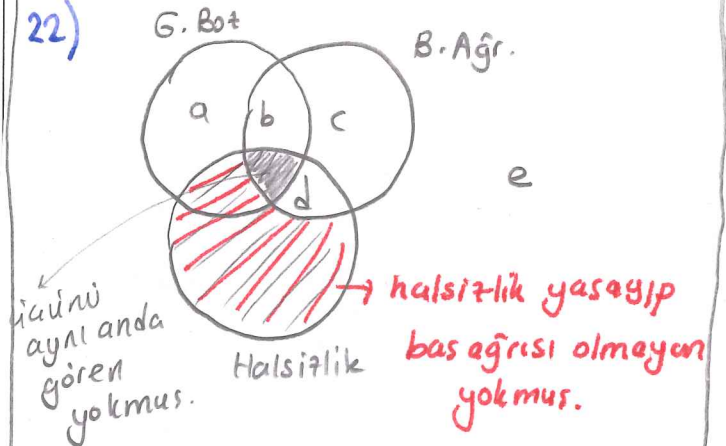 22)
G. Bot
B. Ağr.
a
b
c
d
e
üçünü
aynı anda
gören
yokmus.
Halsizlik
halsizlik yasayıp
bas ağrısı olmayan
yokmus.